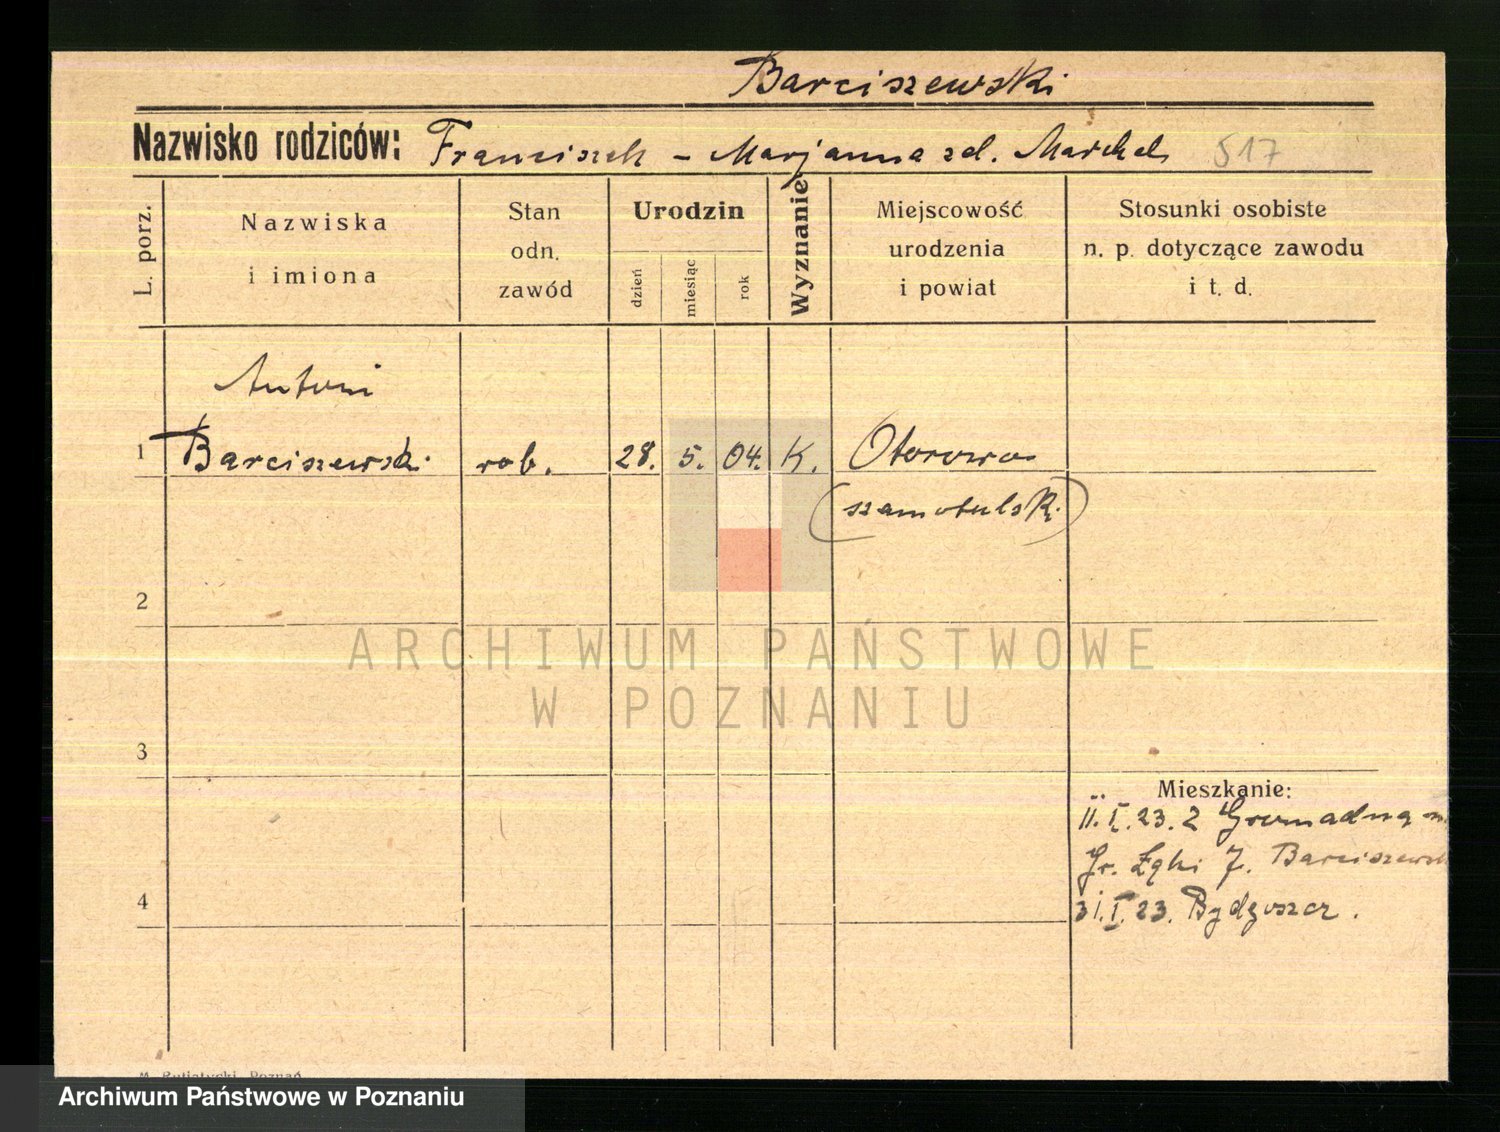 Barciszewski
Nazwisko rodziców: Franciszek - Marjanna zd. Marchel 517
L. porz.
Nazwiska
i imiona
Stan
odn.
zawód
Urodzin
dzień
miesiąc
rok
Wyznanie
Miejscowość
urodzenia
i powiat
Stosunki osobiste
n. p. dotyczące zawodu
i t. d.
Antoni
1 Barciszewski rob. 28. 5. 04. K. Otorowo
(szamotulski)
2
ARCHIWUM PAŃSTWOWE
W POZNANIU
3
Mieszkanie:
11.I.23. 2 Gromadną
Gr. Łąki 7. Barciszewsk
4
31.I.23. Bydgoszcz.
Poznań
Archiwum Państwowe w Poznaniu